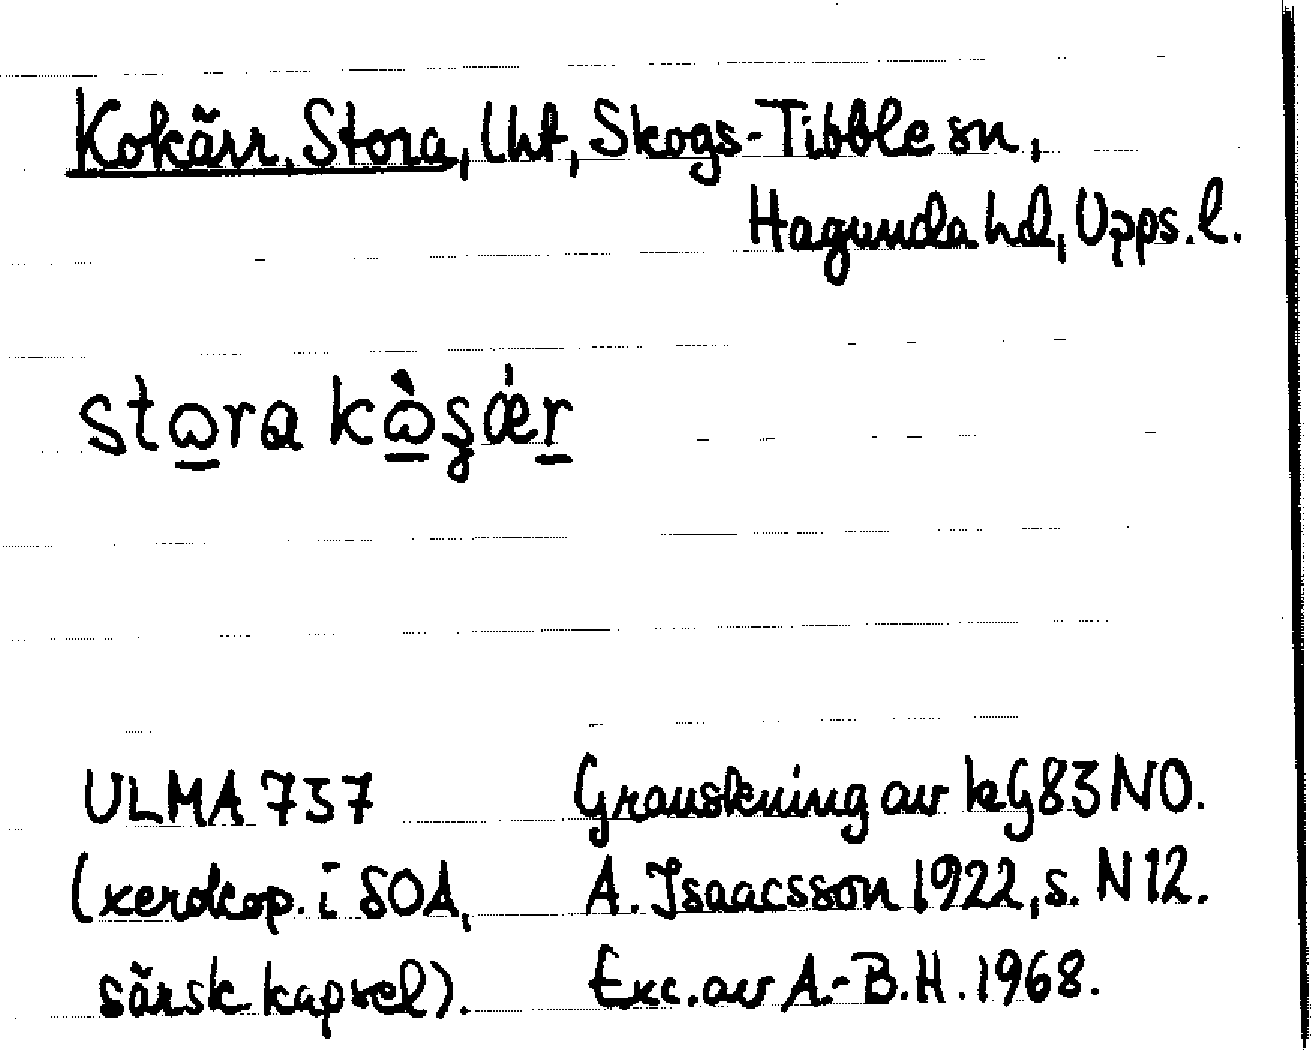 Kokärr, Stora, lht, Skogs-Tibble sn,
Hagunda hd, Upps. l.
stora
ULMA 737 Granskning av kG83NO.
(xerokop. i SOA, A. Isaacsson 1922, s. N 12.
särsk. kapsel). Exc. av A.-B.H. 1968.